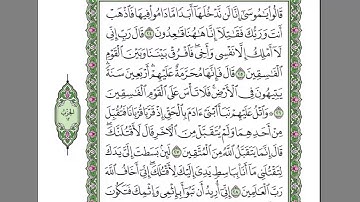 قَالُوا۟ يَـٰمُوسَىٰٓ إِنَّا لَن نَّدْخُلَهَآ أَبَدًا مَّا دَامُوا۟ فِيهَا فَٱذْهَبْ
أَنتَ وَرَبُّكَ فَقَـٰتِلَآ إِنَّا هَـٰهُنَا قَـٰعِدُونَ ٢٤ قَالَ رَبِّ إِنِّى
لَآ أَمْلِكُ إِلَّا نَفْسِى وَأَخِى فَٱفْرُقْ بَيْنَنَا وَبَيْنَ ٱلْقَوْمِ
ٱلْفَـٰسِقِينَ ٢٥ قَالَ فَإِنَّهَا مُحَرَّمَةٌ عَلَيْهِمْ أَرْبَعِينَ سَنَةً
يَتِيهُونَ فِى ٱلْأَرْضِ فَلَا تَأْسَ عَلَى ٱلْقَوْمِ ٱلْفَـٰسِقِينَ
٢٦ وَٱتْلُ عَلَيْهِمْ نَبَأَ ٱبْنَىْ ءَادَمَ بِٱلْحَقِّ إِذْ قَرَّبَا قُرْبَانًا فَتُقُبِّلَ
مِنْ أَحَدِهِمَا وَلَمْ يُتَقَبَّلْ مِنَ ٱلْـَٔاخَرِ قَالَ لَأَقْتُلَنَّكَ
قَالَ إِنَّمَا يَتَقَبَّلُ ٱللَّهُ مِنَ ٱلْمُتَّقِينَ ٢٧ لَئِنۢ بَسَطتَ إِلَىَّ يَدَكَ
لِتَقْتُلَنِى مَآ أَنَا۠ بِبَاسِطٍ يَدِىَ إِلَيْكَ لِأَقْتُلَكَ إِنِّىٓ أَخَافُ ٱللَّهَ
رَبَّ ٱلْعَـٰلَمِينَ ٢٨ إِنِّىٓ أُرِيدُ أَن تَبُوٓأَ بِإِثْمِى وَإِثْمِكَ فَتَكُونَ